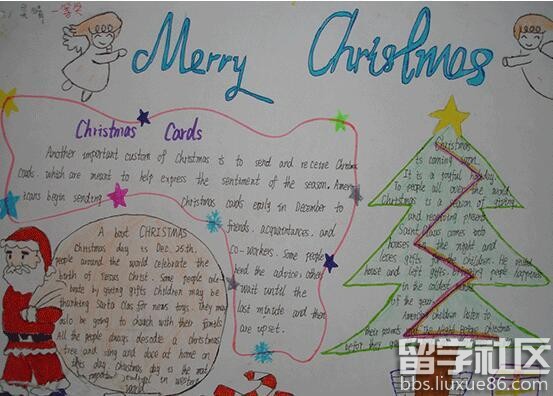 吴晴 一等奖
Merry Christmas
Christmas Cards
Another important custom of Christmas is to send and receive Christmas
cards, which are meant to help express the sentiment of the season. Amer
icans begin sending Christmas cards early in December to
friends, acquaintances, and
co-workers. Some people
heed the advice; others
wait until the
last minute and then
are upset.
A bout CHRISTMAS
Christmas day is Dec. 25th.
people around the world celebrate the
birth of Christ. Some people cele
brate by giving gifts Children may be
thanking Santa Clas for news toys. They may
also be going to church with their
All the people always a Christmas
tree and sing and dace at home on
this day. Christmas day is the most
important in western
world
Christmas
is coming soon.
It is a joyful holiday
To people all over the world
Christmas is a season of giving
and receiving present
Santa Claus comes into
houses in the night and
leves gifts for the children. He
house and left gifts. happened
in the coldest
of the year.
American children listen to
their parents and Christmas
before their
留学社区
bbs.liuxue86.com